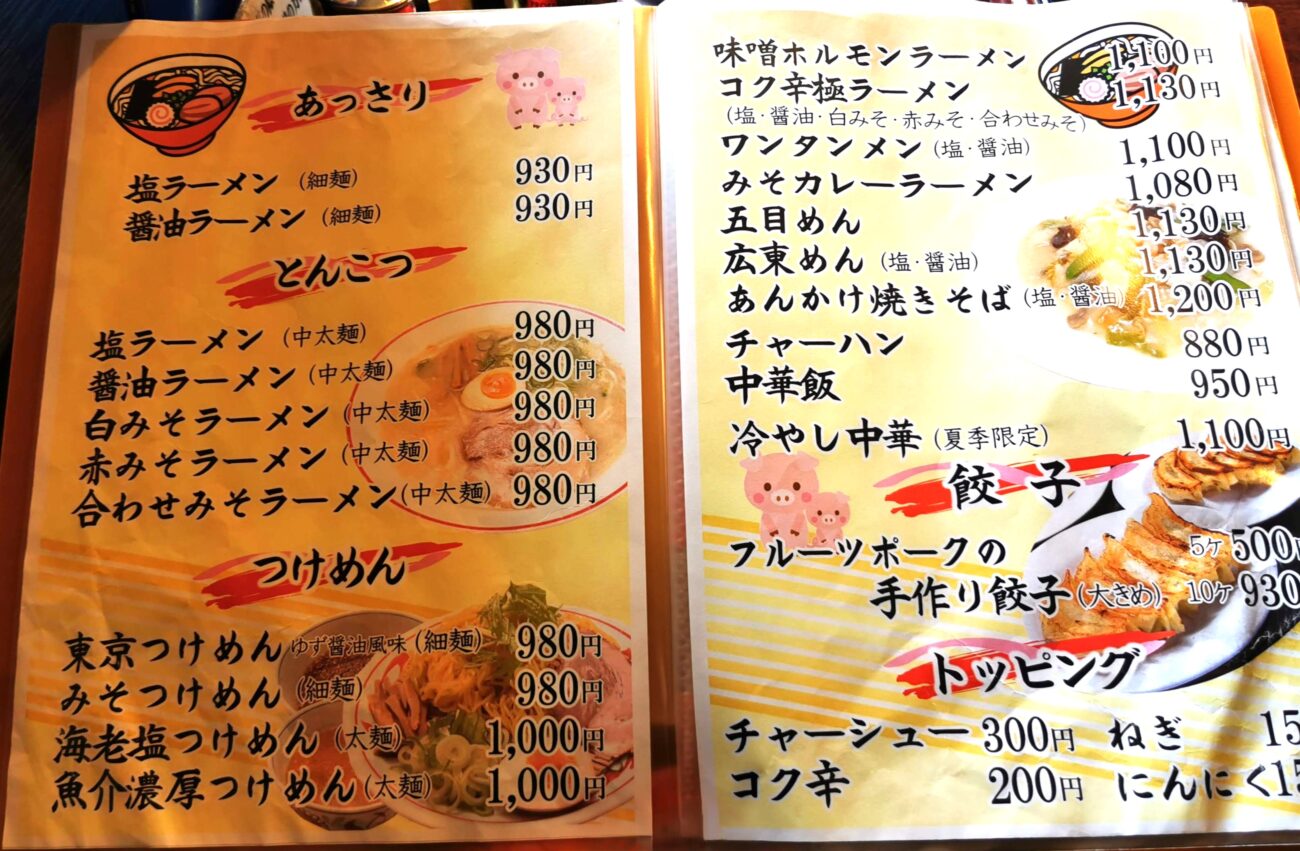 あっさり
塩ラーメン (細麺) 930円
醤油ラーメン (細麺) 930円
とんこつ
塩ラーメン (中太麺) 980円
醤油ラーメン (中太麺) 980円
白みそラーメン (中太麺) 980円
赤みそラーメン (中太麺) 980円
合わせみそラーメン (中太麺) 980円
つけめん
東京つけめん ゆず醤油風味 (細麺) 980円
みそつけめん (細麺) 980円
海老塩つけめん (太麺) 1,000円
魚介濃厚つけめん (太麺) 1,000円
味噌ホルモンラーメン 1,100円
コク辛極ラーメン 1,130円
(塩・醤油・白みそ・赤みそ・合わせみそ)
ワンタンメン (塩・醤油) 1,100円
みそカレーラーメン 1,080円
五目めん 1,130円
広東めん (塩・醤油) 1,130円
あんかけ焼きそば (塩・醤油) 1,200円
チャーハン 880円
中華飯 950円
冷やし中華 (夏季限定) 1,100円
餃子
フルーツポークの 5ケ 500円
手作り餃子 (大きめ) 10ケ 930
トッピング
チャーシュー 300円 ねぎ 15
コク辛 200円 にんにく 15